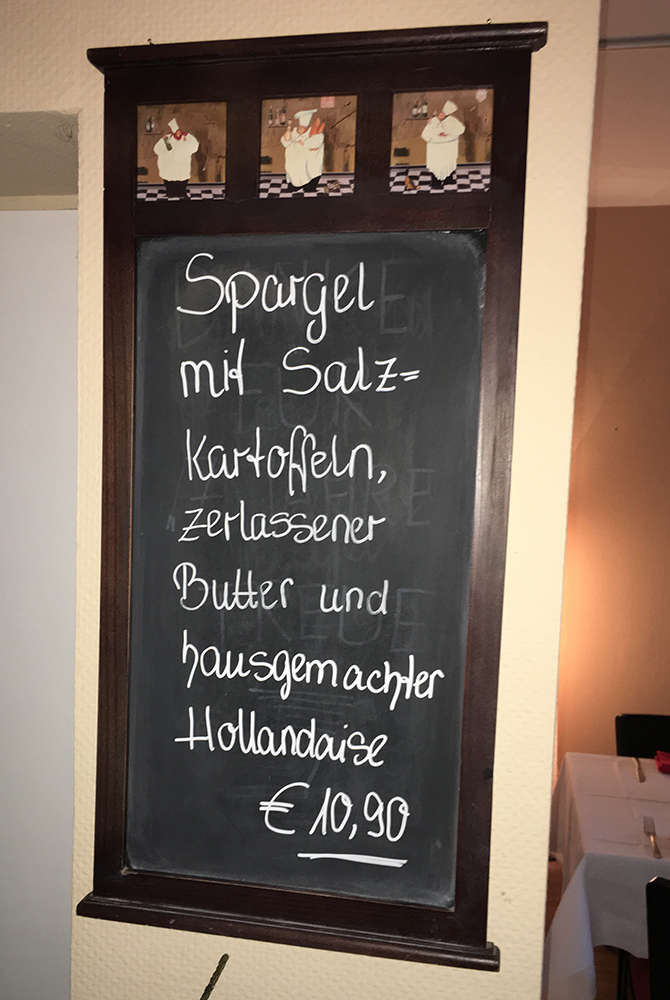 Spargel
mit Salz=
Kartoffeln,
zerlassener
Butter und
hausgemachter
Hollandaise
€ 10,90